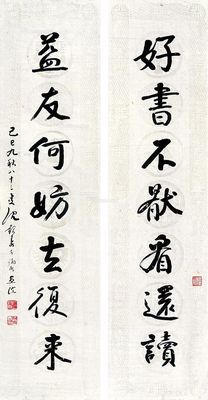 好書不厭看還讀
益友何妨去復來
己巳九秋八十三叟沈